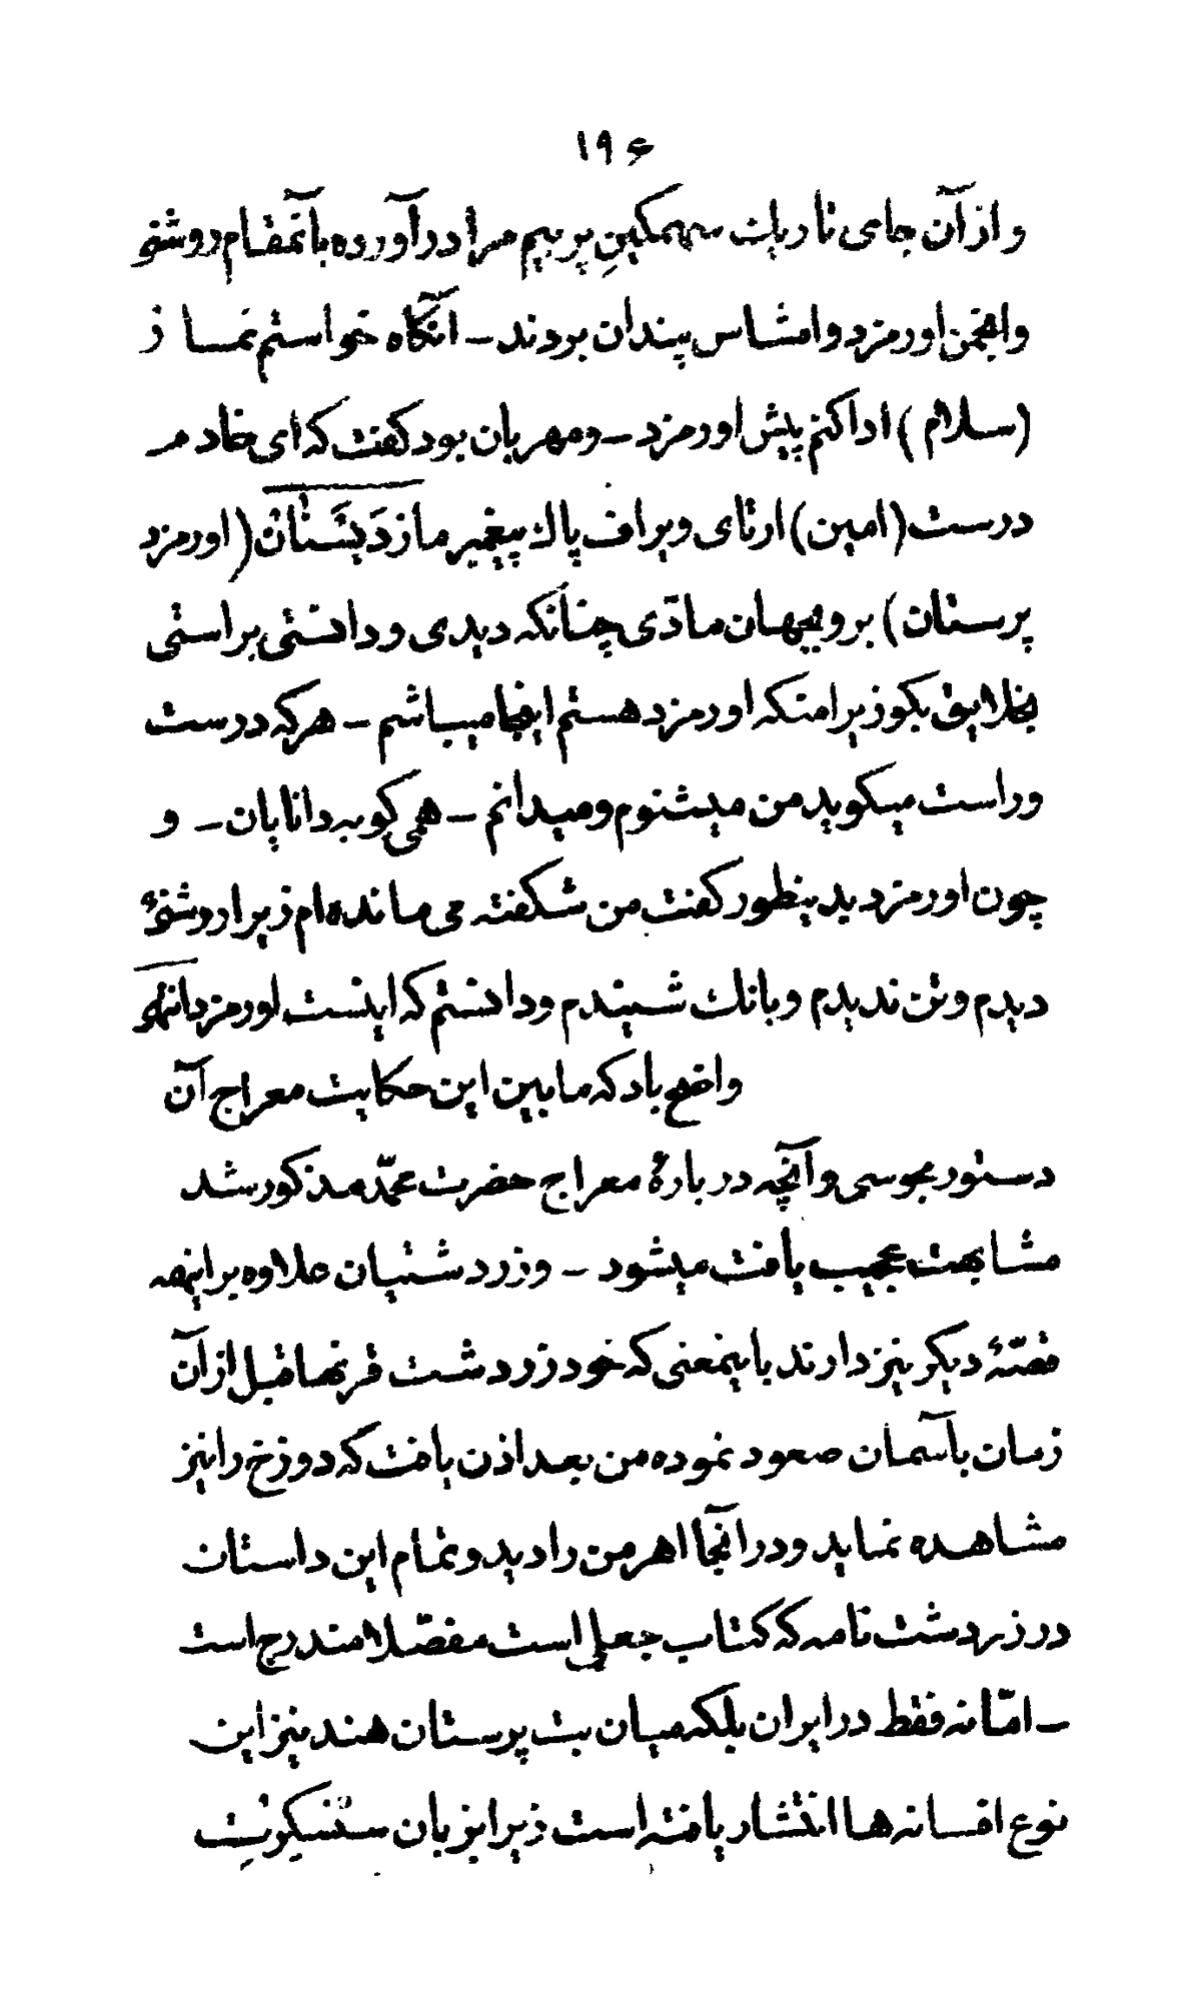 ۱۹۶
و از آن جای تاریك سهمگینِ پر بیم مرا در آورده بآنمقام روشنی
وانجمن اورمزد وامشاس پندان بردند – آنگاه خواستم نماز
(سلام) ادا کنم پیش اورمزد – ومهربان بود گفت که ای خادم
درست (امین) ارتای ویراف پاك پیغمبر مازدَیَسَنان (اورمزد
پرستان) برو بجهان مادّی چنانکه دیدی و دانستی براستی
بخلایق بگو زیرا منکه اورمزد هستم اینجا میباشم – هرکه درست
وراست میگوید من میشنوم و میدانم – همی گو به دانایان – و
چون اورمزد بدینطور گفت من شگفته می مانده ام زیرا روشنیٔ
دیدم وتن ندیدم وبانك شنیدم ودانستم که اینست اورمزد انتهی
واضح باد که مابین این حکایت معراج آن
دستور مجوسی و آنچه در بارهٔ معراج حضرت محمّد مذکور شد
مشابهت عجیب یافت میشود – وزردشتیان علاوه بر اینهمه
قصّهٔ دیگر نیز دارند باینمعنی که خود زردشت قرنها قبل از آن
زمان بآسمان صعود نموده من بعد اذن یافت که دوزخ را نیز
مشاهده نماید ودر آنجا اهرمن را دید وتمام این داستان
در زردشت نامه که کتاب جعلی است مفصّلا مندرج است
– امّا نه فقط در ایران بلکه میان بت پرستان هند نیز این
نوع افسانه ها انتشار یافته است زیرا بزبان سنسکریت